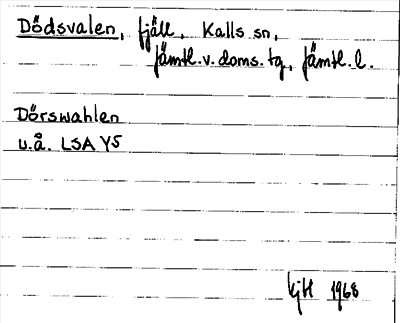 Dödsvalen, fjäll, Kalls sn,
Jämtl.v.doms.tg, Jämtl.l.
Dörswahlen
u.å. LSA Y5
kjH 1968